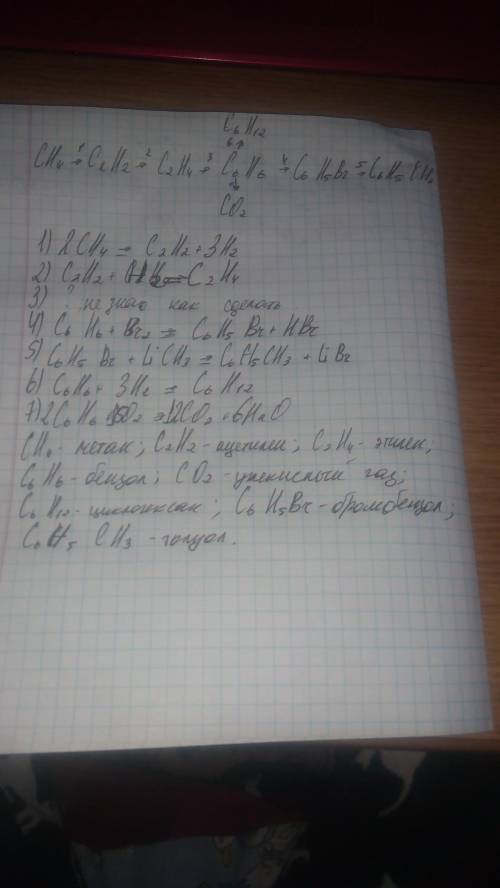 C6H12
6↑
CH4 →1 C2H2 →2 C2H4 →3 C6H6 →4 C6H5Br →5 C6H5CH3
7↓
CO2
1) 2CH4 = C2H2 + 3H2
2) C2H2 + H2 = C2H4
3) ? не знаю как сделать
4) C6H6 + Br2 = C6H5Br + HBr
5) C6H5Br + LiCH3 = C6H5CH3 + LiBr
6) C6H6 + 3H2 = C6H12
7) 2C6H6 + 15O2 = 12CO2 + 6H2O
CH4 - метан; C2H2 - ацетилен; C2H4 - этилен;
C6H6 - бензол; CO2 - углекислый газ;
C6H12 - циклогексан; C6H5Br - бромбензол;
C6H5CH3 - толуол.